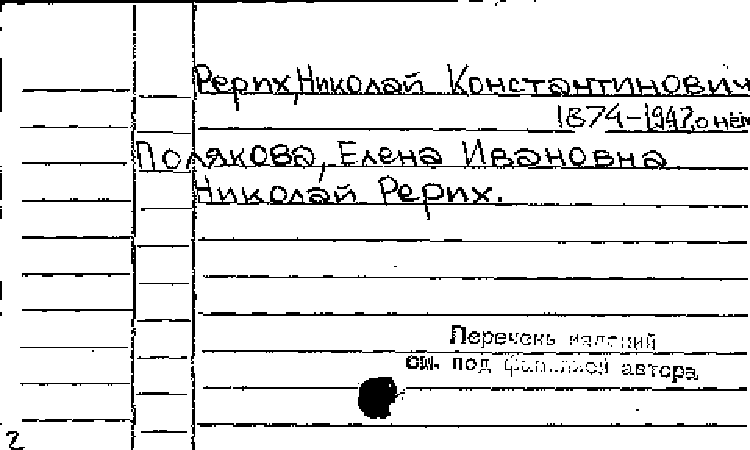 Рерих, Николай Константинович
1874-1947, о нем
Полякова, Елена Ивановна
Николай Рерих.
Перечень изданий
см. под фамилией автора
2